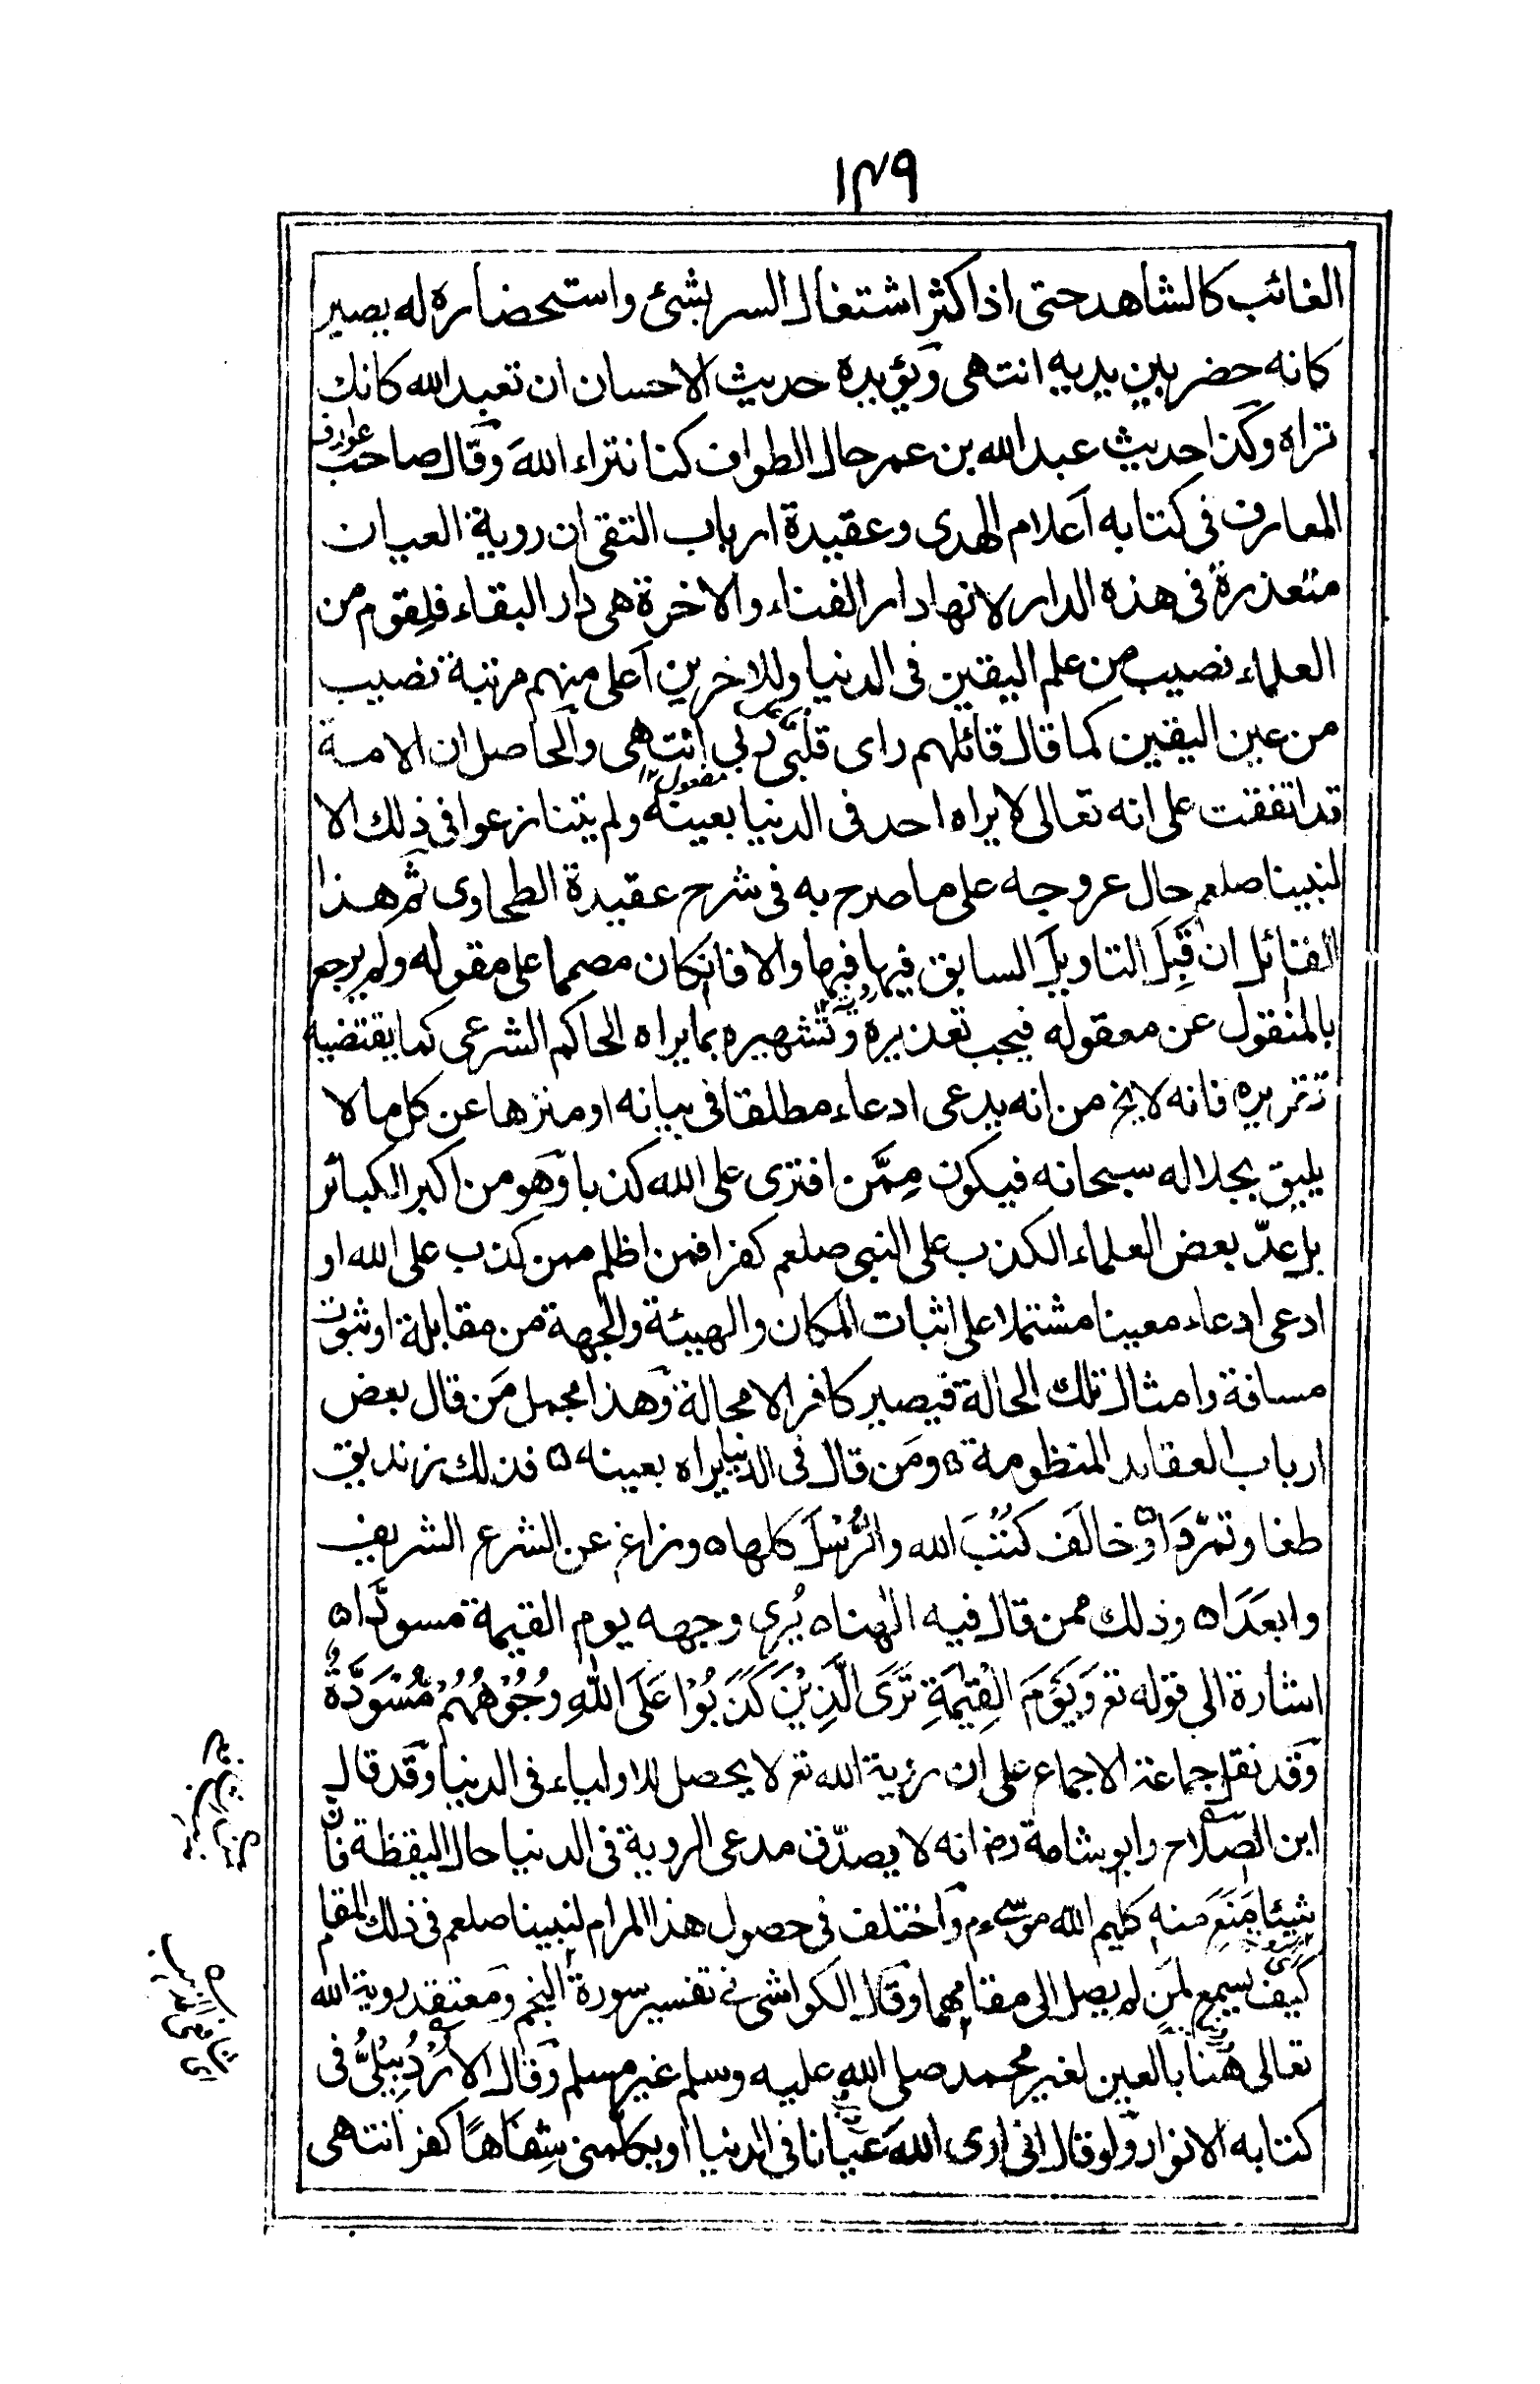 ١٣٩
الغائب كالشاهد حتى اذا كثر اشتغال السر بشئ واستحضاره له يصير
كانه حضر بين يديه انتهى ويؤيده حديث الاحسان ان تعبد الله كانك
تراه وكذا حديث عبد الله بن عمر حال الطواف كنا نتراء اللهَ وقال صاحب عوارف
المعارف فى كتابه اعلام الهدى وعقيدة ارباب التقى ان روية العيان
متعذرة فى هذه الدار لانها دار الفناء والاخرة هى دار البقاء فلِقوم من
العلماء نصيب من علم اليقين فى الدنيا وللاخرين اعلى منهم مرتبة نصيب
من عين اليقين كما قال قائلهم راى قلبى ربى انتهى والحاصل ان الامة
قد اتفقت على انه تعالى لا يراه احد فى الدنيا بعينه ولم يتنازعوا فى ذلك الا
لنبينا صلعم حال عروجه على ما صرح به فى شرح عقيدة الطحاوى ثم هذا
القائل ان قَبِلَ التاويلَ السابق فيها فبها والا فان كان مصمما على مقوله ولم يرجع
بالمنقول عن معقوله فيجب تعذيره وتشهيره بما يراه الحاكم الشرعى كما يقتضيه
تقريره فانه لا يخ من انه يدعى ادعاء مطلقا فى بيانه او منزها عن كل ما لا
يليق بجلاله سبحانه فيكون مِمَّن افترى على الله كذبا وهو من اكبر الكبائر
بل عدّ بعض العلماء الكذب على النبى صلعم كفرا فمن اظلم ممن كذب على الله او
ادعى ادعاء معينا مشتملا على اثبات المكان والهيئة والجهة من مقابلة او ثبوت
مسافة وامثال تلك الحالة فيصير كافرا لا محالة وهذا مجمل مَن قال بعض
ارباب العقايد المنظومة ٥ ومَن قال فى الدنيا يراه بعينه ٥ فذلك زنديق
طغا وتمرّدَا ٥ وخالَف كتُبَ الله والرُّسْلَ كلها ٥ وزاغ عن الشرع الشريف
وابعَدَا ٥ وذلك ممن قال فيه الٰهنا ٥ يُرى وجهه يوم القيٰمة مسودَّا ٥
اشارة الى قوله تع وَيَوْمَ الْقِيٰمَةِ تَرَى الَّذِيْنَ كَذَبُوْا عَلَى اللهِ وُجُوْهُهُمْ مُّسْوَدَّةٌ
وقد نقل جماعة الاجماع على ان رؤية الله تع لا يحصل للاولياء فى الدنيا وقد قال
ابن الصلاح وابو شامة رض انه لا يصدّق مدعى الروية فى الدنيا حال اليقظة فانَّ
شيئا مَنَعَ منه كليم الله موسى ءم واختلف فى حصول هذا المرام لنبينا صلعم فى ذلك المقام
كيف يسمع لمَن لم يصل الى مقامهما وقال الكواشى فى تفسير سورة النجم ومعتقد روية الله
تعالى هُنا بالعين لغير محمد صلى الله عليه وسلم غير مسلم وقال الاَرْدُبِيْلىُّ فى
كتابه الانوار ولو قال انى ارى اللهَ عيانا فى الدنيا او يكلمنى شِفَاهًا كفر انتهى